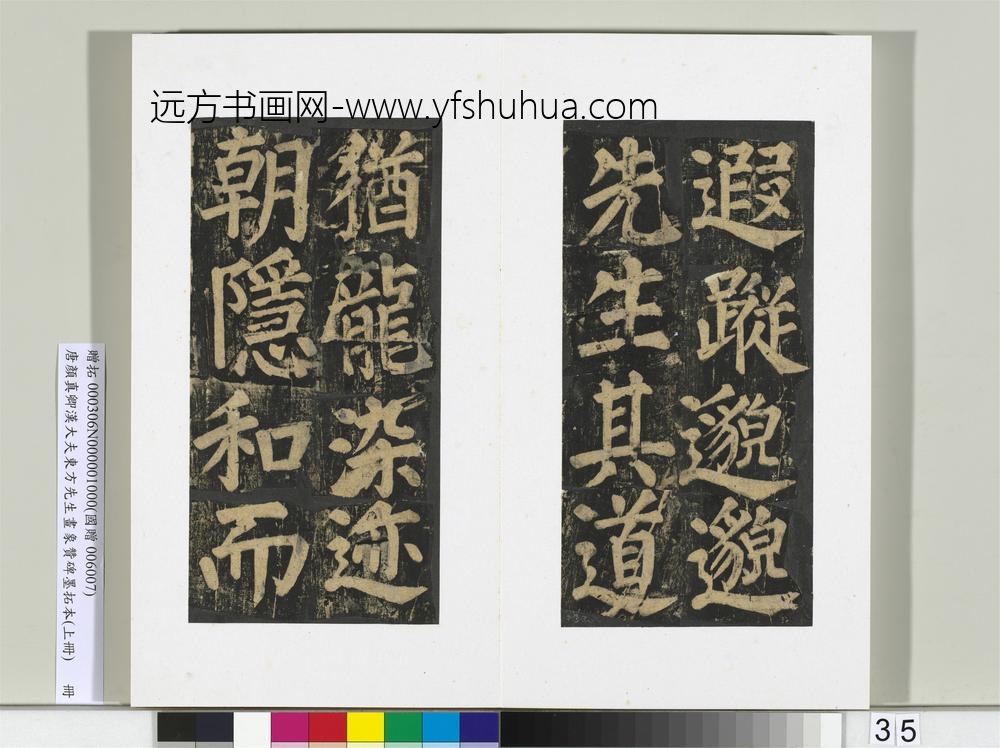 远方书画网-www.yfshuhua.com
遐蹤邈邈
先生其道
猶龍染迹
朝隱和而
贈拓 000306N000001000(國贈 006007)
唐顏真卿漢大夫東方先生畫象贊碑墨拓本(上冊) 冊
35